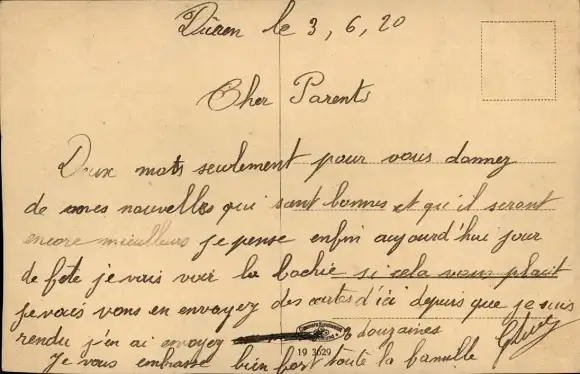 Düren le 3, 6, 20
Cher Parents
Deux mots seulement pour vous donnez
de mes nouvelles qui sont bonnes et qu'il seront
encore meuilleurs je pense enfin aujourd'hui jour
de fete je vais voir la si cela vous plait
je vais vous en envoyez des cartes d'ici depuis que je suis
rendu j'en ai envoyez 3 douzaines
Je vous embrasse bien fort toute la famille
19 3629